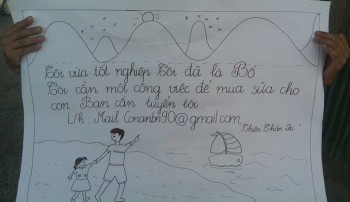 Tôi vừa tốt nghiệp Tôi đã là Bố
Tôi cần một công việc để mua sữa cho
con. Bạn cần tuyển tôi.
L/h : Mail Conantn90@gmail.com
"Chân Thành